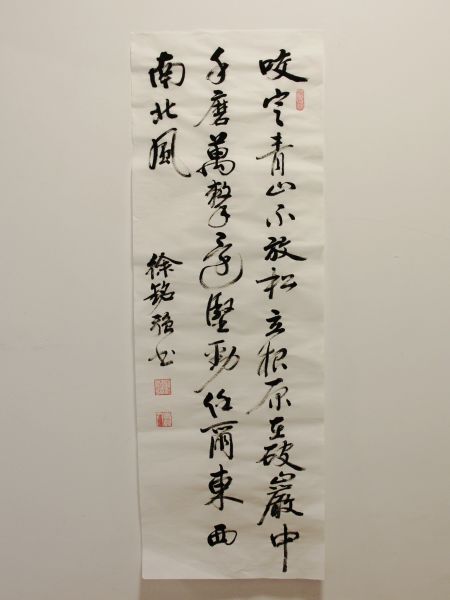 咬定青山不放松立根原在破巖中
千磨萬擊還堅勁任爾東西
南北風
徐銘強书